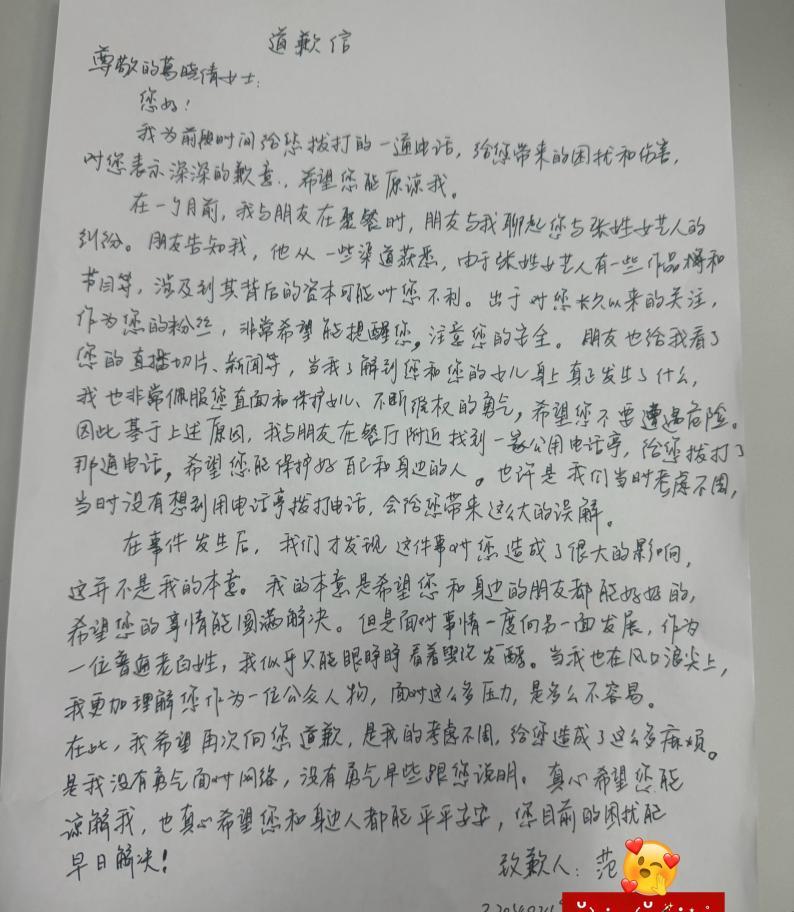 道歉信
尊敬的葛晓倩女士:
您好!
我为前段时间给您拨打的一通电话,给您带来的困扰和伤害,
对您表示深深的歉意,希望您能原谅我。
在一个月前,我与朋友在聚餐时,朋友与我聊起您与张姓女艺人的
纠纷。朋友告知我,他从一些渠道获悉,由于张姓女艺人有一些作品将和
节目等,涉及到其背后的资本可能对您不利。出于对您长久以来的关注,
作为您的粉丝,非常希望能提醒您,注意您的安全。朋友也给我看了
您的直播切片、新闻等,当我了解到您和您的女儿身上真正发生了什么,
我也非常佩服您直面和保护女儿、不断维权的勇气,希望您不要遭遇危险。
因此基于上述原因,我与朋友在餐厅附近找到一家公用电话亭,给您拨打了
那通电话,希望您能保护好自己和身边的人。也许是我们当时考虑不周,
当时没有想到用电话亭拨打电话,会给您带来这么大的误解。
在事件发生后,我们才发现这件事对您造成了很大的影响,
这并不是我的本意。我的本意是希望您和身边的朋友都能好好的,
希望您的事情能圆满解决。但是面对事情一度向另一面发展,作为
一位普通老百姓,我似乎只能眼睁睁看着舆论发酵。当我也在风口浪尖上,
我更加理解您作为一位公众人物,面对这么多压力,是多么不容易。
在此,我希望再次向您道歉,是我的考虑不周,给您造成了这么多麻烦。
是我没有勇气面对网络,没有勇气早些跟您说明。真心希望您能
谅解我,也真心希望您和身边人都能平平安安,您目前的困扰能
早日解决!
致歉人:范